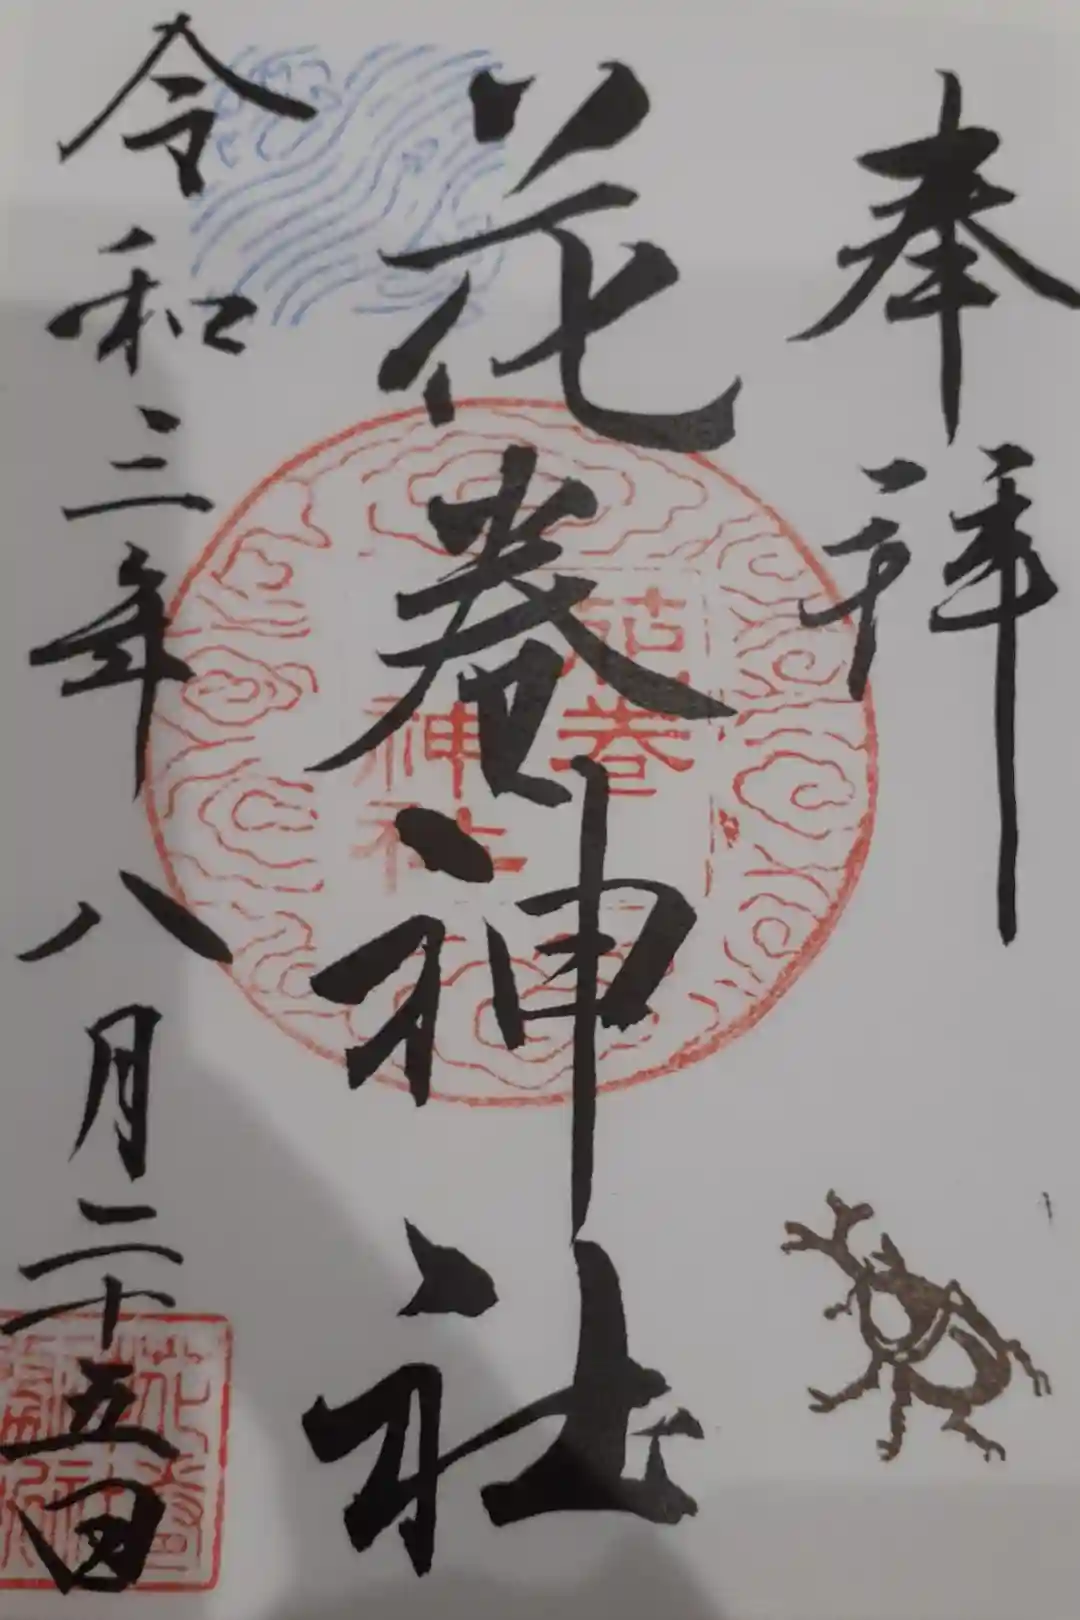 奉拝
花巻神社
令和三年八月二十五日
花巻
神社